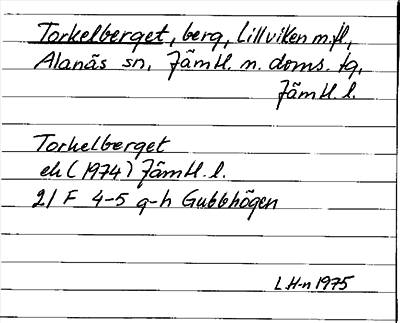 Torkelberget, berg, Lillviken m.fl,
Alanäs sn, Jämtl. n. doms. tg,
Jämtl. l.
Torkelberget
ek (1974) Jämtl. l.
21 F 4-5 g-h Gubbhögen
L H-n 1975